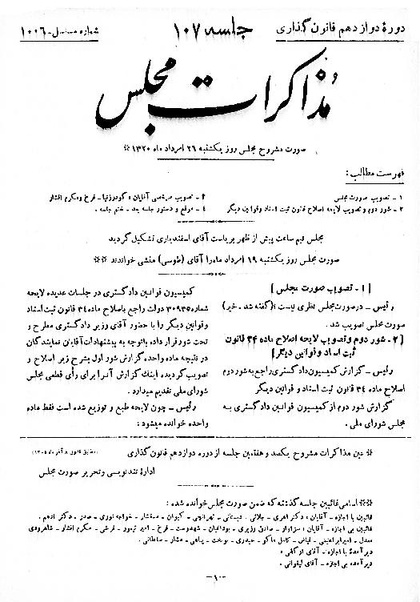 دورهٔ دوازدهم قانون گذاری
جلسه ۱۰۷
شماره مسلسل ـ ۱۰۰۶
مذاکرات مجلس
صورت مشروح مجلس روز یکشنبه ۲۶ امرداد ماه ۱۳۲۰ *
فهرست مطالب:
۱ ـ تصویب صورت مجلس
۲ ـ شور دوم و تصویب لایحه اصلاح قانون ثبت اسناد و قوانین دیگر
۳ ـ تصویب مرخصی آقایان: گودرزنیا ـ فرخ و مکرم افشار
۴ ـ موقع و دستور جلسه بعد ـ ختم جلسه.
مجلس نیم ساعت پیش از ظهر بریاست آقای اسفندیاری تشکیل گردید
صورت مجلس روز یکشنبه ۱۹ امرداد ماه را آقای (طوسی) منشی خواندند
[۱ ـ تصویب صورت مجلس]
رئیس ـ در صورت مجلس نظری نیست؟ (گفته شد ـ خیر)
صورت مجلس تصویب شد.
[۲ ـ شور دوم وتصویب لایحه اصلاح ماده ۳۴ قانون
ثبت اسناد و قوانین دیگر]
رئیس ـ گزارش کمیسیون دادگستری راجع بشور دوم
اصلاح ماده ۳۴ قانون ثبت اسناد و قوانین دیگر
گزارش شور دوم از کمیسیون قوانین دادگستری به
مجلس شورای ملی.
کمیسیون قوانین دادگستری در جلسات عدیده لایحه
شماره ۳۰۹۳۵ دولت راجع باصلاح ماده ۳۴ قانون ثبت اسناد
وقوانین دیگر را با حضور آقای وزیر دادگستری مطرح و
تحت شور قرار داده باتوجه به پیشنهادات آقایان نمایندگان
در نتیجه ماده واحده گزارش شور اول بشرح زیر اصلاح و
تصویب گردیده اینک گزارش آنرا برای رأی قطعی مجلس
شورای ملی تقدیم میدارد.
رئیس ـ چون لایحه طبع و توزیع شده است فقط ماده
واحده خوانده میشود:
* عین مذاکرات مشروح یکصد و هفتمین جلسه از دوره دوازدهم قانون گذاری
اداره تندنویسی و تحریر صورت مجلس
* اسامی غائبین جلسه گذشته که ضمن صورت مجلس خوانده شده:
دیر آمده با اجازه ـ آقای اوکانی ـ
دیر آمده بی اجازه ـ آقای لیقوانی ـ
ـ۱ـ